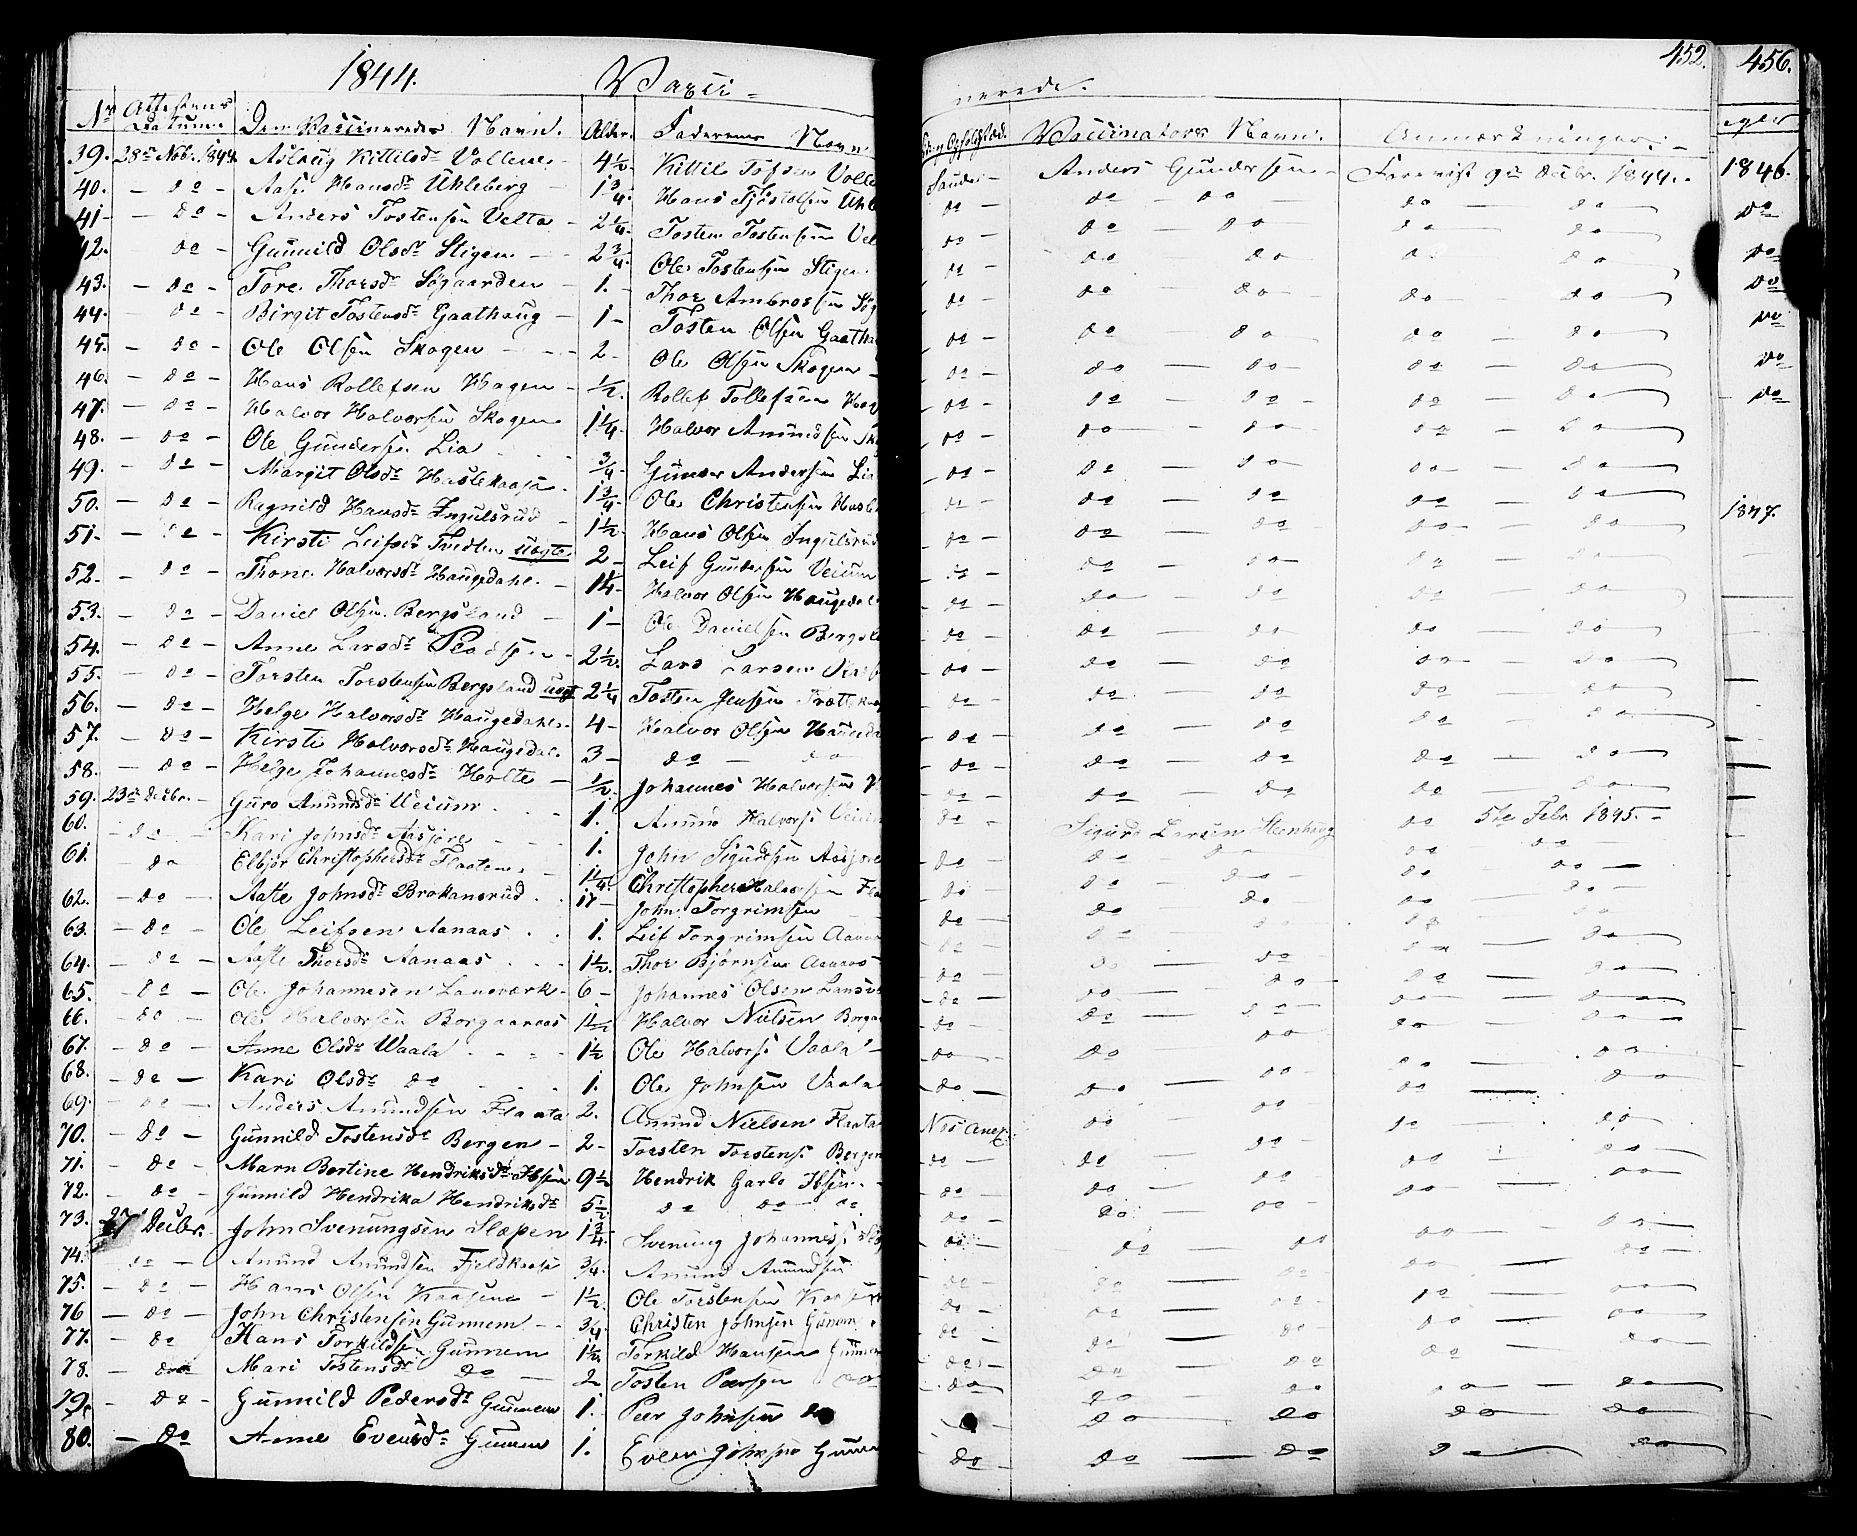 1844. Vacci-
nerede.
452.
456.
Nr Attestens Datum. Den Vaccineredes Navn. Alder. Faderens Navn Vaccinators Navn. Anmærkninger.
39. 28de Novbr. 1844 Aslaug Kittilsdr Vollene 4½ Kittil Volle Sauder Anders Gundersen Forevist 9de Decbr. 1844.
40. — do — Aase Hansdr Uhleberg 1¾ Hans Uhle do — do — do do — do
41 — do — Anders Tostensen Velta 2¼ Tosten Tostensen Vel do — do — do do — do
42. do — Gunnild Olsdr Stigen 2¾ Ole Tostensen Stigen do — do do do do
43. — do — Tore Thorsdr Søgaarden 1. Thor Ambrosen Søg do — do — do do do
44. do — Birgit Tostensdr Gaathaug 1 — Tosten Olsen Gaatha do — do — do do — do
45. — do — Ole Olsen Skogen 2 — Ole Olsen Skogen do — do — do do — do
46. — do — Hans Rollefsen Hagen ½ Rollef Tollefsen Hag do — do — do do — do
47. — do — Halvor Halvorsen Skogen 1¼ Halvor Amundsen Sk do — do — do do — do
48. — do — Ole Gundersen Lia ¾ Gunder Andersen Lia do — do — do do — do
49. — do — Margit Olsdr Haslekaasa 1¾ Ole Christensen Hasle do — do — do do — do
50. — do — Ragnild Hansdr Ingulsrud 1½ Hans Olsen Ingulsrud do — do — do do — do
51. — do — Kirsti Leifsdr 2 — Leif Gundersen Veium do — do — do do — do
52. — do — Thone Halvorsdr Haugedahl 1¼ Halvor Olsen Haugedal do — do — do do — do
53. — do — Daniel Olsen Bergsland 1 — Ole Danielsen Bergsl do — do — do do — do
54. — do — Anne Larsdr 2½ Lars Larsen do — do — do do — do
55. — do — Torsten Torstensen Bergsland 2¼ Tosten Jensen do — do — do do — do
56. — do — Helge Halvorsdr Haugedahl 4 — Halvor Olsen Hauged do — do — do do — do
57. — do — Kirsti Halvorsdr Haugedal 3 — do — do do — do — do do — do
58. — do — Helge Johannesdr Holte ½ Johannes Halvorsen do — do — do do — do
59. 23de Decbr. — Guro Amundsdr Veium 1. Amund Halvors. Veium do — Sigurd Larsen Steenhaug do 5te Febr. 1845.
60. — do — Kari Johnsdr Aasjore 1. John Sigurdsen Aasjore do — do do do — do
61. do Elbjør Christophersdr Flaaten 1¼ Christopher Halvorsen Fla do — do — do do — do
62. — do — Aaste Johnsdr Brokansrud 1¼ John Torgrimsen do — do — do do
63. — do — Ole Leifsen Aanaas 1. Leif Torgrimsen Aana do — do — do do — do
64. do — Aaste Thorsdr Aanaas 1½ Thor Bjørnsen Aanaas do — do — do do — do
65. — do — Ole Johannesen Lansværk 6 — Johannes Olsen Lansv do — do — do do — do
66. — do — Ole Halvorsen Borgaanaas 1½ Halvor Nielsen Borga do — do — do do — do
67. — do — Anne Olsdr Waala 1½ Ole Halvors. Vaala do — do — do do — do
68. — do — Kari Olsdr do 1. Ole Johnsen Vaala do — do — do do — do
69. — do — Anders Amundsen Flaata 2. Amund Nielsen Flaata Nes Anex. do — do do — do
70. — do — Gunnild Tostensdr Bergen 2 — Torsten Torstens. Bergen do — do — do do — do
71. — do — Marn Bertine Hendriksdr Ibsen 9½ Hendrik Carlo Ibsen do — do — do do — do
72. — do — Gunnild Hendrika Hendriksdr 5½ do do do do — do — do
73. 27 Decbr. John Svenungsen Slæpen 1¾ Svenung Johannes. do — do — do do — do
74. do — Amund Amundsen Fjeldkaasa ¾ Amund Amundsen do — do — do do
75. — do — Hans Olsen Kaasene 1½ Ole Torstensen Kaas do — do — do do — do
76 — do — John Christensen Gunnem ¾ Christen Johnsen Gunnem do — do — do do — do
77. — do Hans Torkildsen Gunnem 1½ Torkild Hansen Gunnem do — do — do do — do
78. — do Mari Tostensdr do — 2 Tosten Pærsen do do — do — do do — do
79. — do — Gunnild Pedersdr Gunnem 1. Peer Johnsen do — do — do do — do
80. — do Anne Evensdr Gunnem 1. Even Johnsen Gunn do — do — do do — do
1846.
do
do
do
do
do
do
1847.